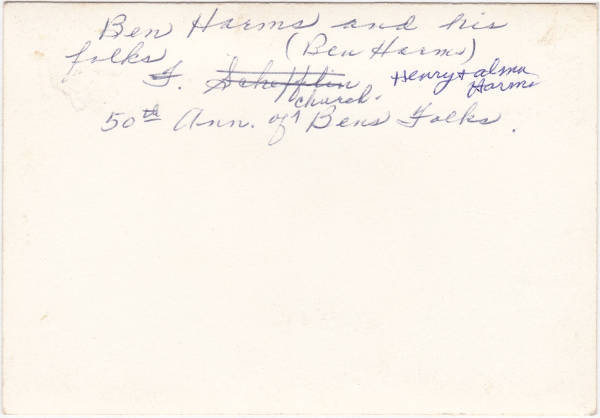 Ben Harms and his
folks (Ben Harms)
F. Schefflin Henry & alma
Harms
church.
50th Ann. of Bens Folks.